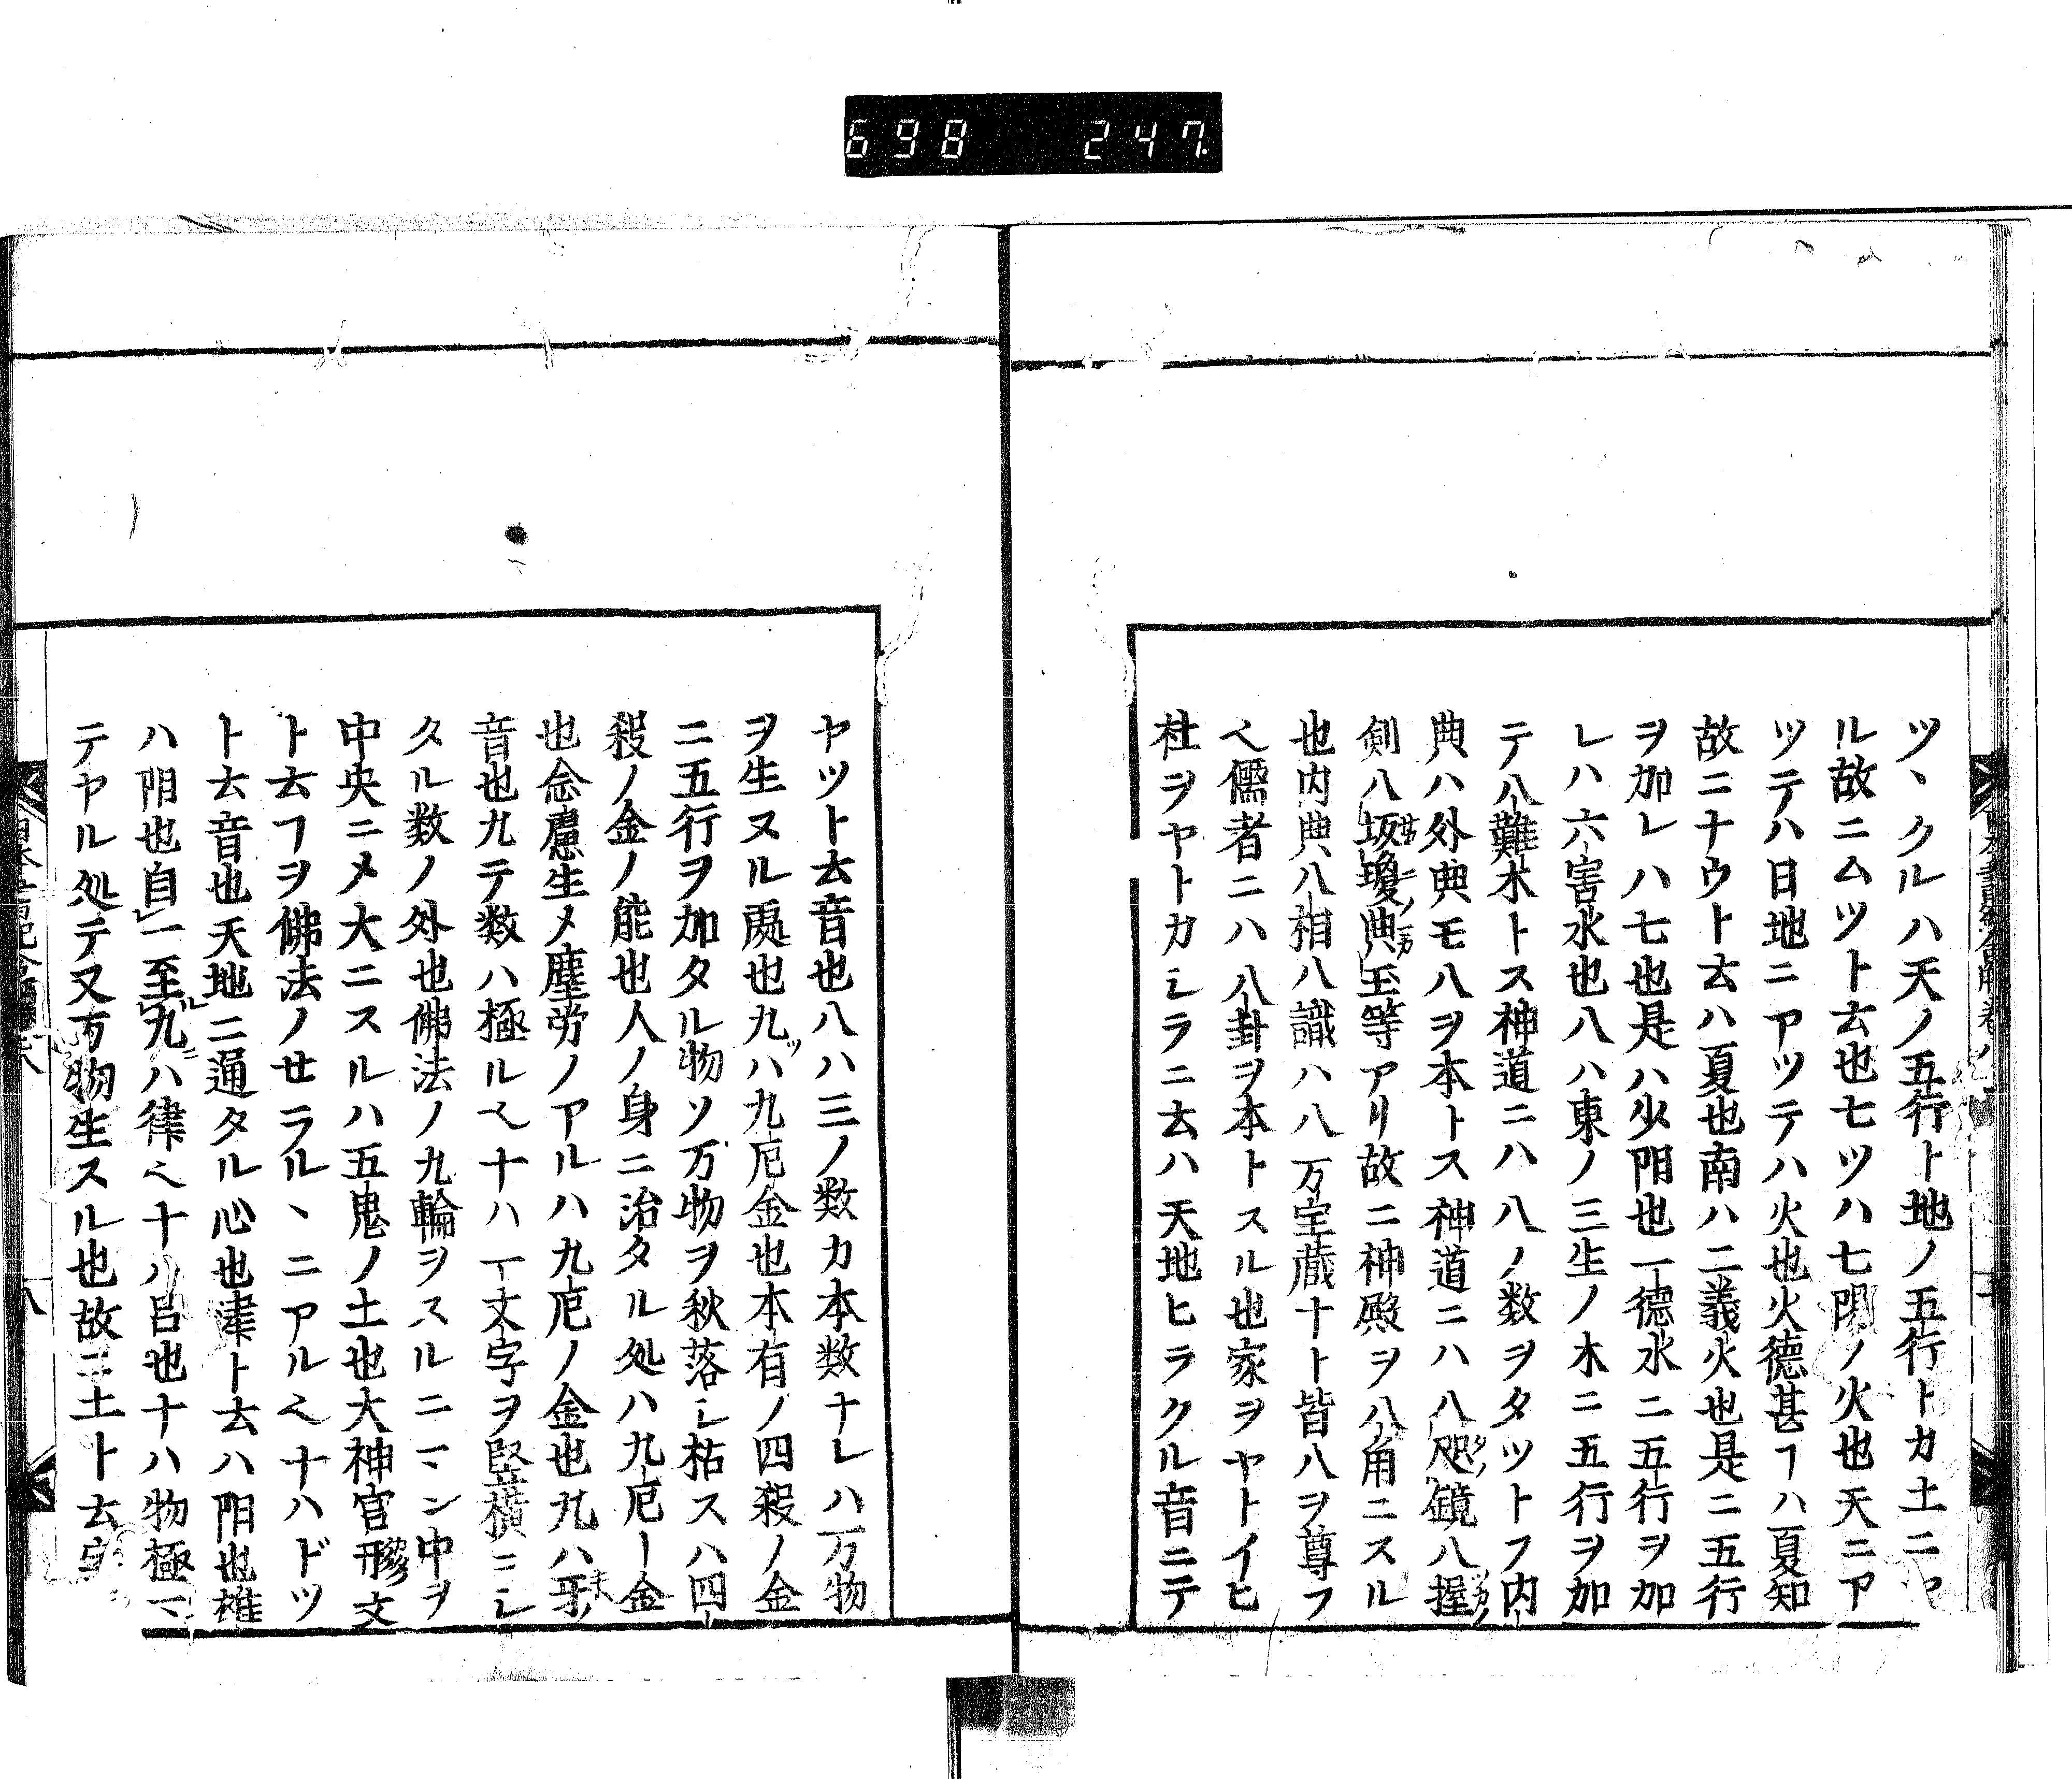 698 247
ツヽクルハ天ノ五行ト地ノ五行トカ土ニヤ
ル故ニムツト云也七ツハ七陽ノ火也天ニア
ツテハ日地ニアツテハ火也火德甚ヿハ夏知
故ニナウト云ハ夏也南ハ二義火也是ニ五行
ヲ加レハ七也是ハ少阳也一德水ニ五行ヲ加
レハ六害水也八ハ東ノ三生ノ木ニ五行ヲ加
テ八難木トス神道ニハ八ノ数ヲタツトフ内
典ハ外典モ八ヲ本トス神道ニハ八咫鏡八握
剣八坂瓊典玉等アリ故ニ神殿ヲ八角ニスル
也内典八相八識ハ八万宝蔵ナト皆八ヲ尊フ
乀儒者ニハ八卦ヲ本トスル也家ヲヤトイヒ
社ヲヤトカシラニ云ハ天地ヒラクル音ニテ
ヤツト云音也八ハ三ノ数カ本数ナレハ万物
ヲ生ヌル處也九ツハ九厄金也本有ノ四殺ノ金
ニ五行ヲ加タル物ソ万物ヲ秋落シ枯スハ四
殺ノ金ノ能也人ノ身ニ治タル処ハ九厄ー金
也念慮生メ塵労ノアルハ九厄ノ金也九ハ牙ノ
音也九テ数ハ極ル乀十ハ一文字ヲ竪横ニシ
タル数ノ外也佛法ノ九輪ヲスルニ一ン中ヲ
中央ニメ大ニスルハ五鬼ノ土也大神官形文
ト云ヿヲ佛法ノセラルヽニアル乀十ハドツ
ト云音也天地ニ通タル心也律ト云ハ阳也雄
ハ阴也自一至九ハ律乀十ハ呂也十ハ物極一
テヤル処テ又万物生スル也故ニ土ト云